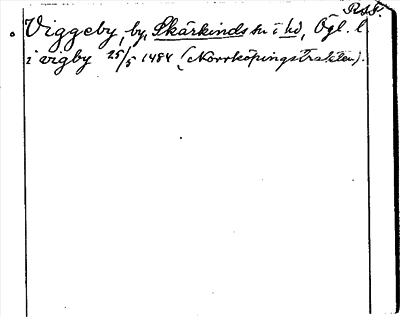 R.A.P.
Viggeby, by, Skärkinds sn i hd, Ögl. l.
i vigby 25/5 1484 (Norrköpingstrakten).